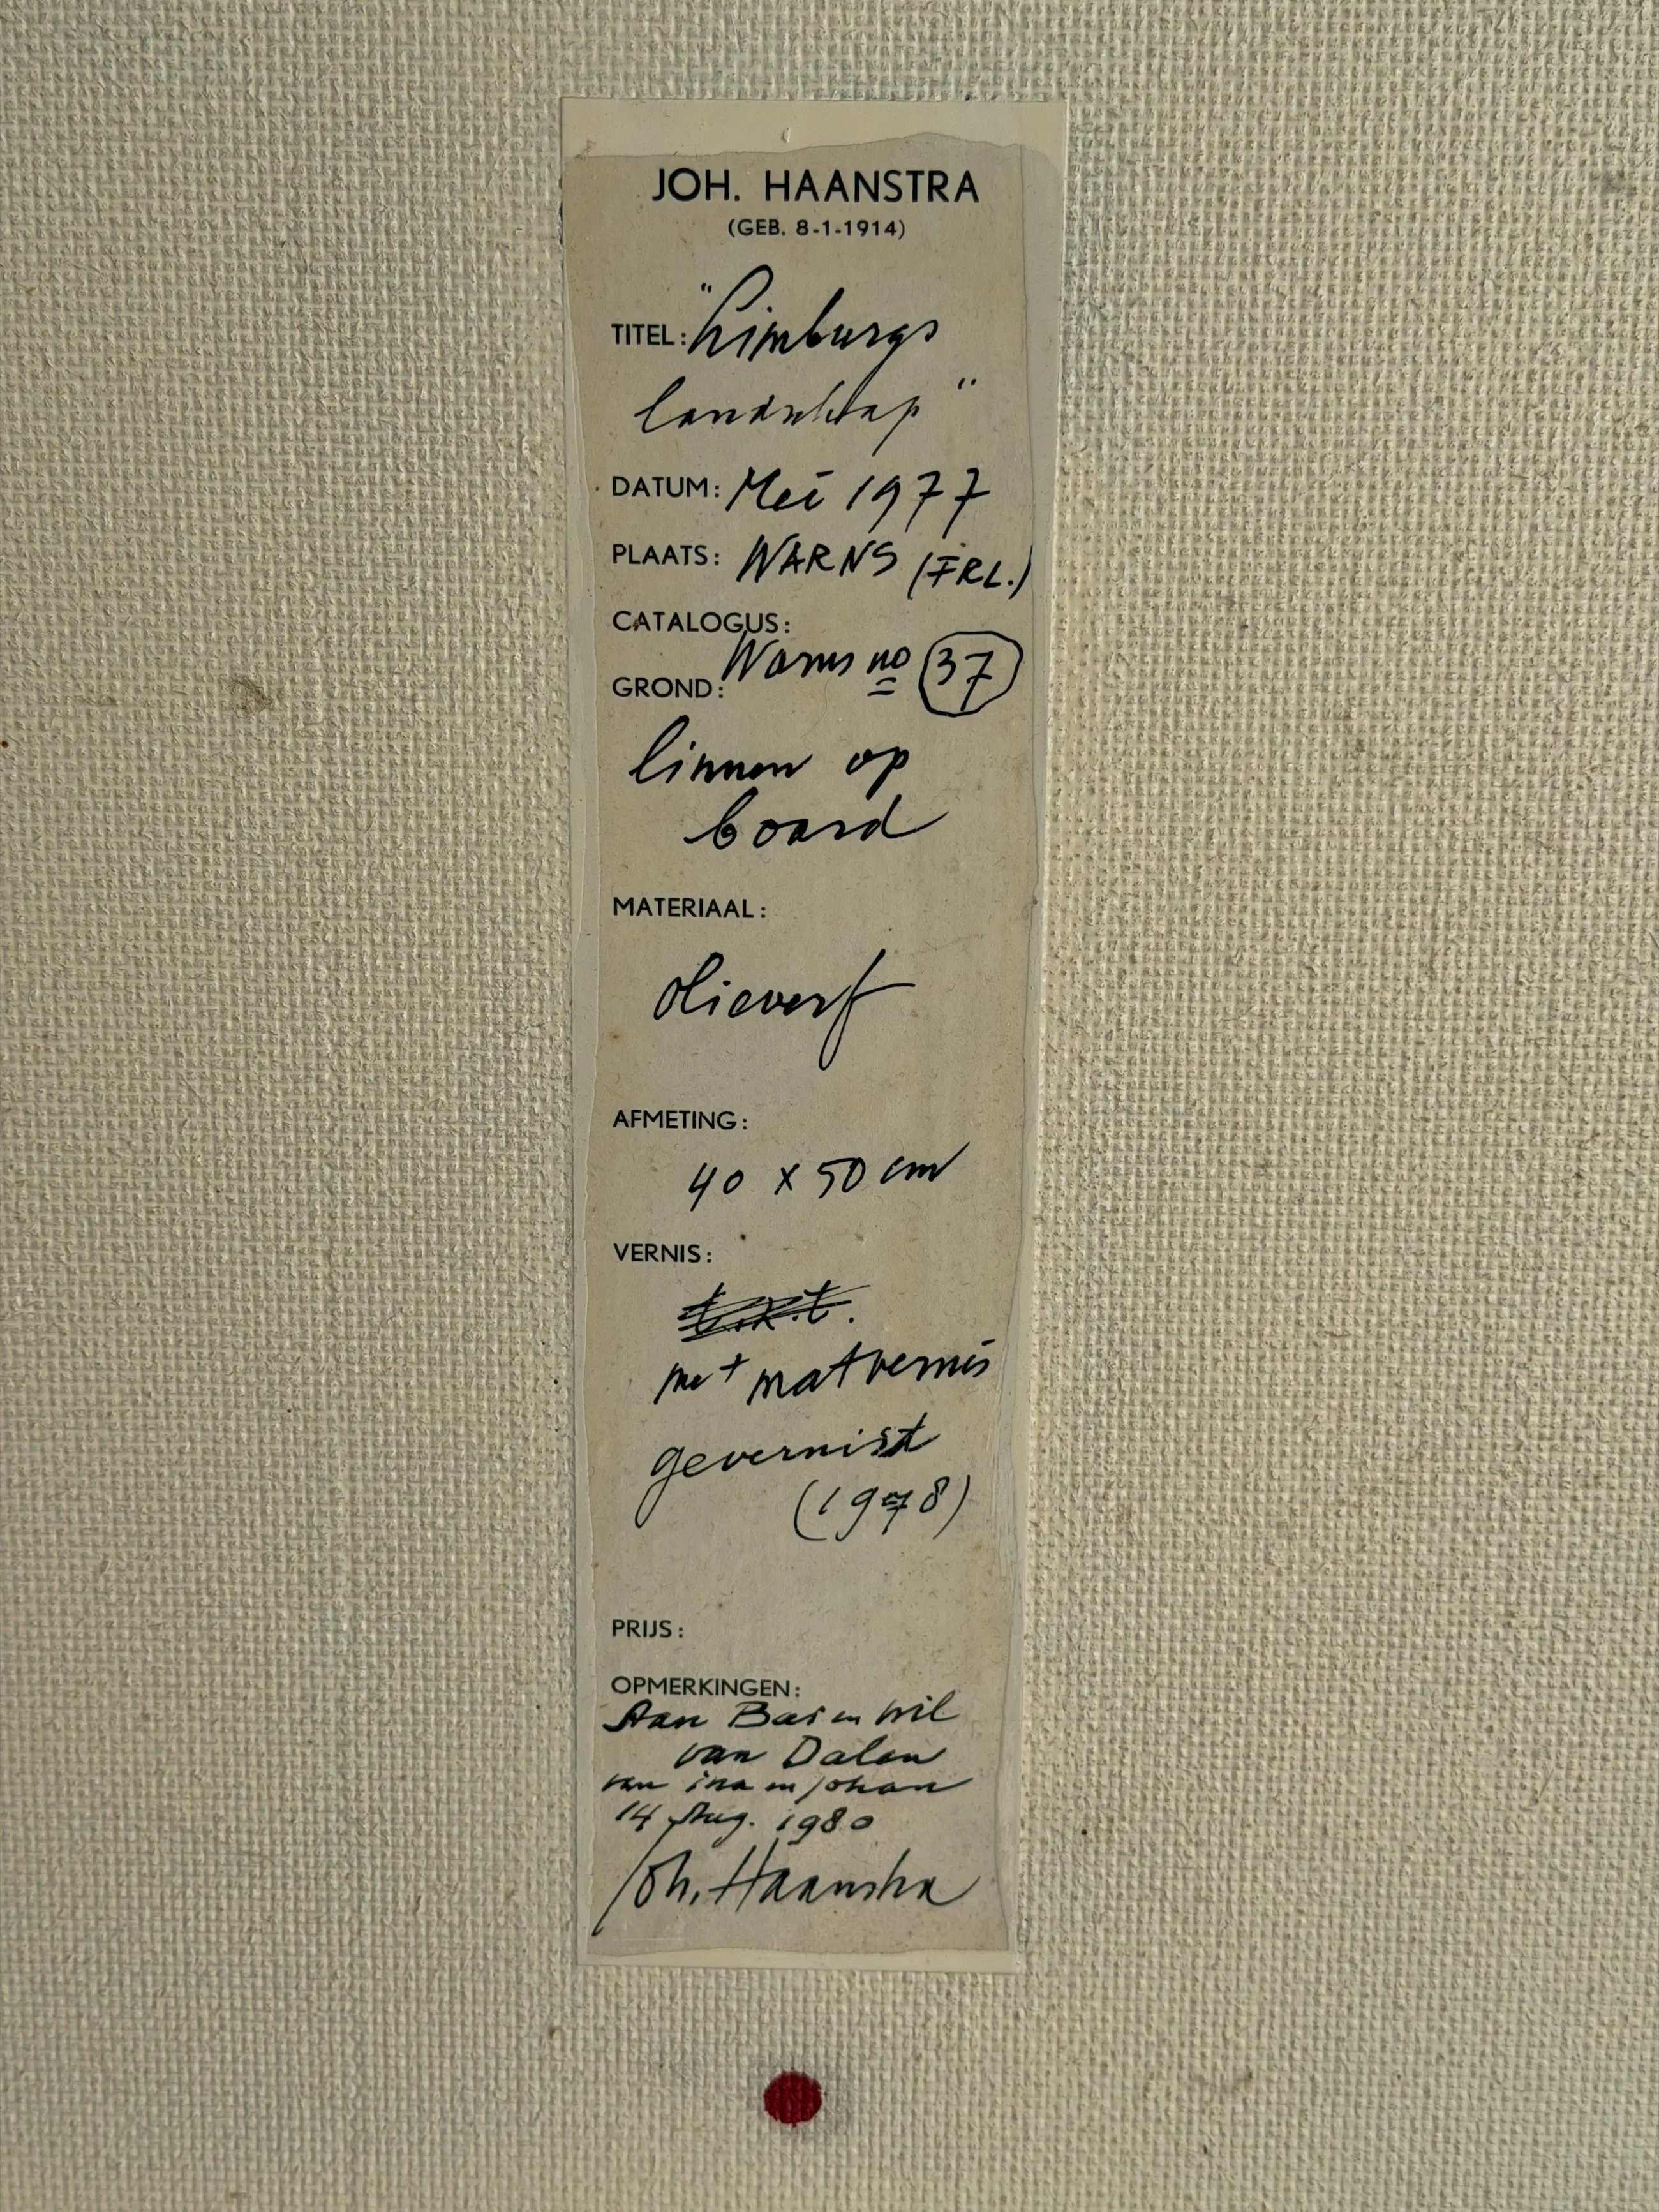 JOH. HAANSTRA
(GEB. 8-1-1914)
TITEL: "Limburgs
landschap"
DATUM: Mei 1977
PLAATS: WARNS (FRL.)
CATALOGUS:
Warns no 37
GROND:
linnen op
board
MATERIAAL:
olieverf
AFMETING:
40 x 50 cm
VERNIS:
met matvernis
gevernist
(1978)
PRIJS:
OPMERKINGEN:
Aan Bas en Wil
van Dalen
van ina en Johan
14 Aug. 1980
Joh. Haanstra